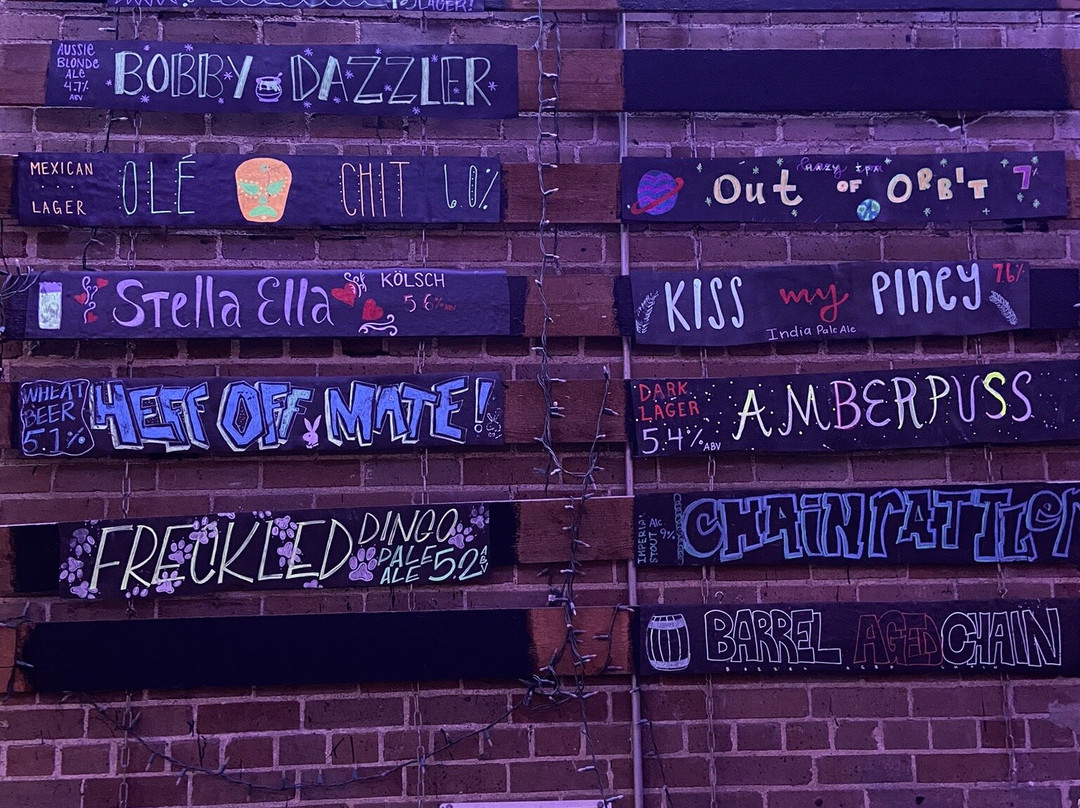 LAGER!
AUSSIE
BLONDE
ALE
4.7%
ABV
BOBBY DAZZLER
MEXICAN
LAGER
OLÉ CHIT 6.0%
Stella Ella
KÖLSCH
5.6%
WHEAT
BEER
5.1%
HEFF OFF MATE!
FRECKLED
DINGO
PALE
ALE 5.2%
ABV
Out OF ORBIT 7%
KISS my PINEY 7.6%
India Pale Ale
DARK
LAGER
5.4% ABV
AMBERPUSS
IMPERIAL
STOUT
Alc.
9%
CHAINRATTLER
BARREL AGED CHAIN